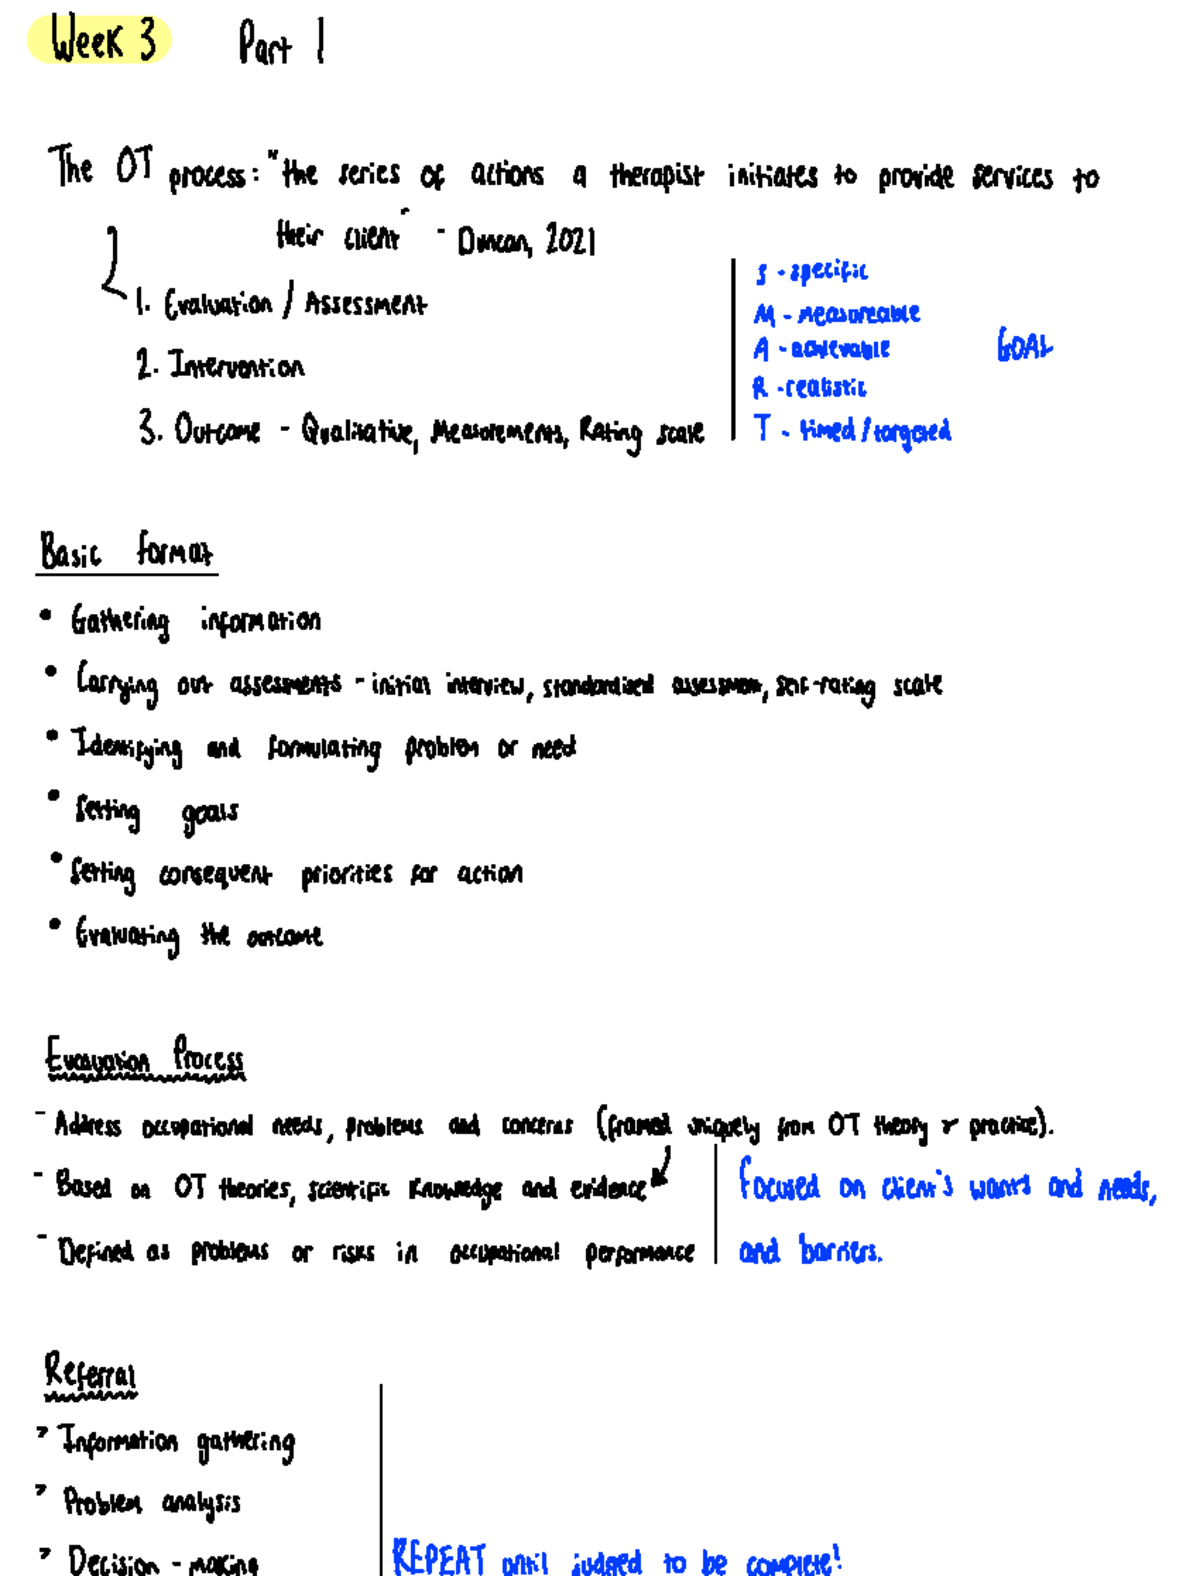 Week 3 Part 1
The OT process: "the series of actions a therapist initiates to provide services to
their client" - Duncan, 2021
1. Evaluation / Assessment
2. Intervention
3. Outcome - Qualitative, Measurements, Rating scale
S - specific
M - measureable
A - achievable
R - realistic
T - timed / targeted
GOAL
Basic format
• Gathering information
• Carrying out assessments - initial interview, standardised assessment, self-rating scale
• Identifying and formulating problem or need
• Setting goals
• Setting consequent priorities for action
• Evaluating the outcome
Evaluation Process
- Address occupational needs, problems and concerns (framed uniquely from OT theory & practice).
- Based on OT theories, scientific knowledge and evidence
- Defined as problems or risks in occupational performance
focused on client's wants and needs,
and barriers.
Referral
> Information gathering
> Problem analysis
> Decision - making
REPEAT until judged to be complete!